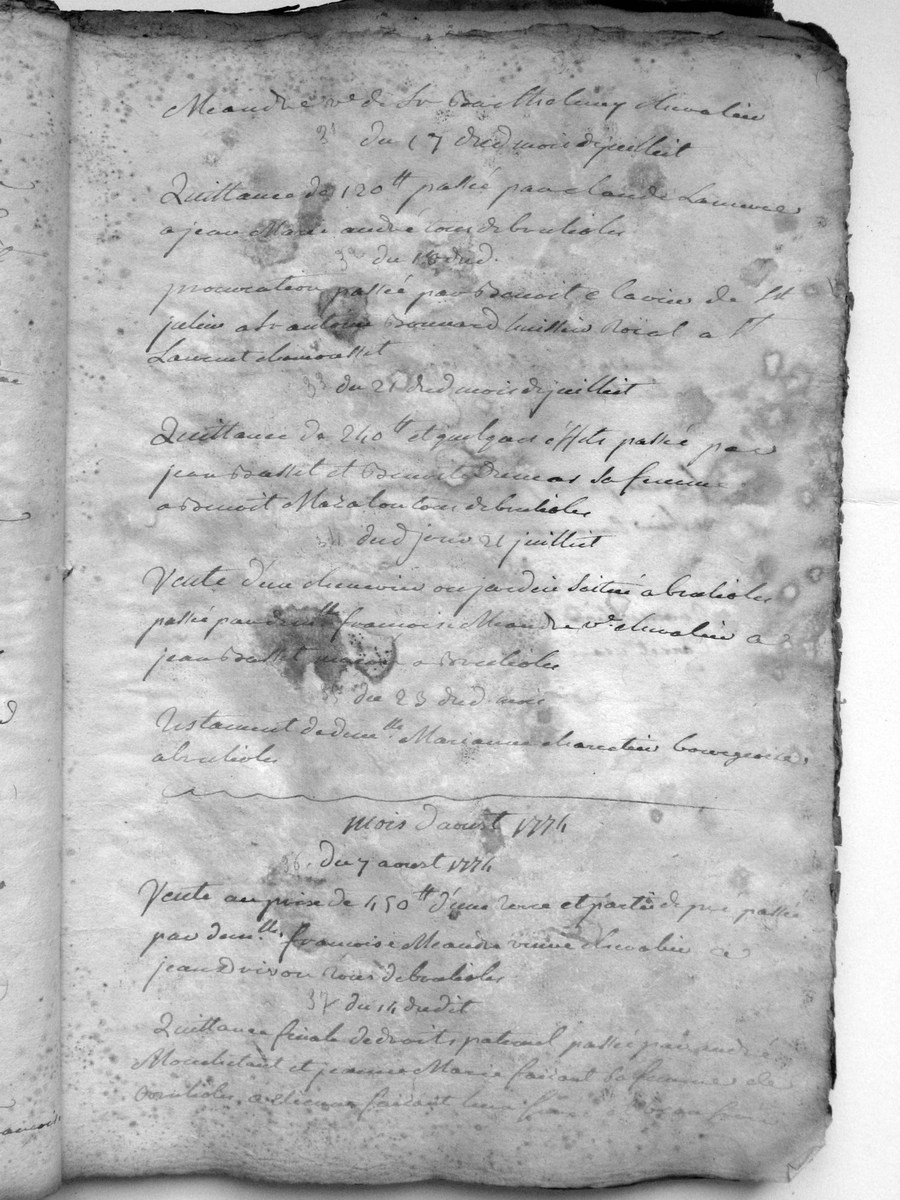 Meandre ve de Sr Barthelemy chevalier
31 du 17 dud mois de juillet
Quittance de 120 tt passée par claude Laurence
a jean Marie andré tous de brulioles
du 18 dud.
procuration passée par Benoit Clavier de St
julien a Sr antoine Bonnard huissier Roial a St
Laurent chamousset
33 du 21 dud mois de juillet
Quittance de 240 tt et quelques éffets passée par
jean Basset et Benoite Dumas sa femme
a Benoit tous de brulioles
34 dud jour 21 juillet
Vente d'un chenevier ou jardin scitué a brulioles
passée par demlle francoise Meandre ve chevalier a
jean Basset a Brulioles
35 du 23 dud mois
Testament de demlle Marianne bourgeoise
a brulioles
Mois d'aoust 1774
36. du 7 aoust 1774
Vente au prix de 450 tt d'une terre et partie de pré passée
par demlle francoise Meandre veuve chevalier a
jean tous de brulioles
37 du 14 dudit
Quittance finale de droits paternel passée par andré
et jeanne Marie faisant sa femme de
Brulioles a etienne faisant leur